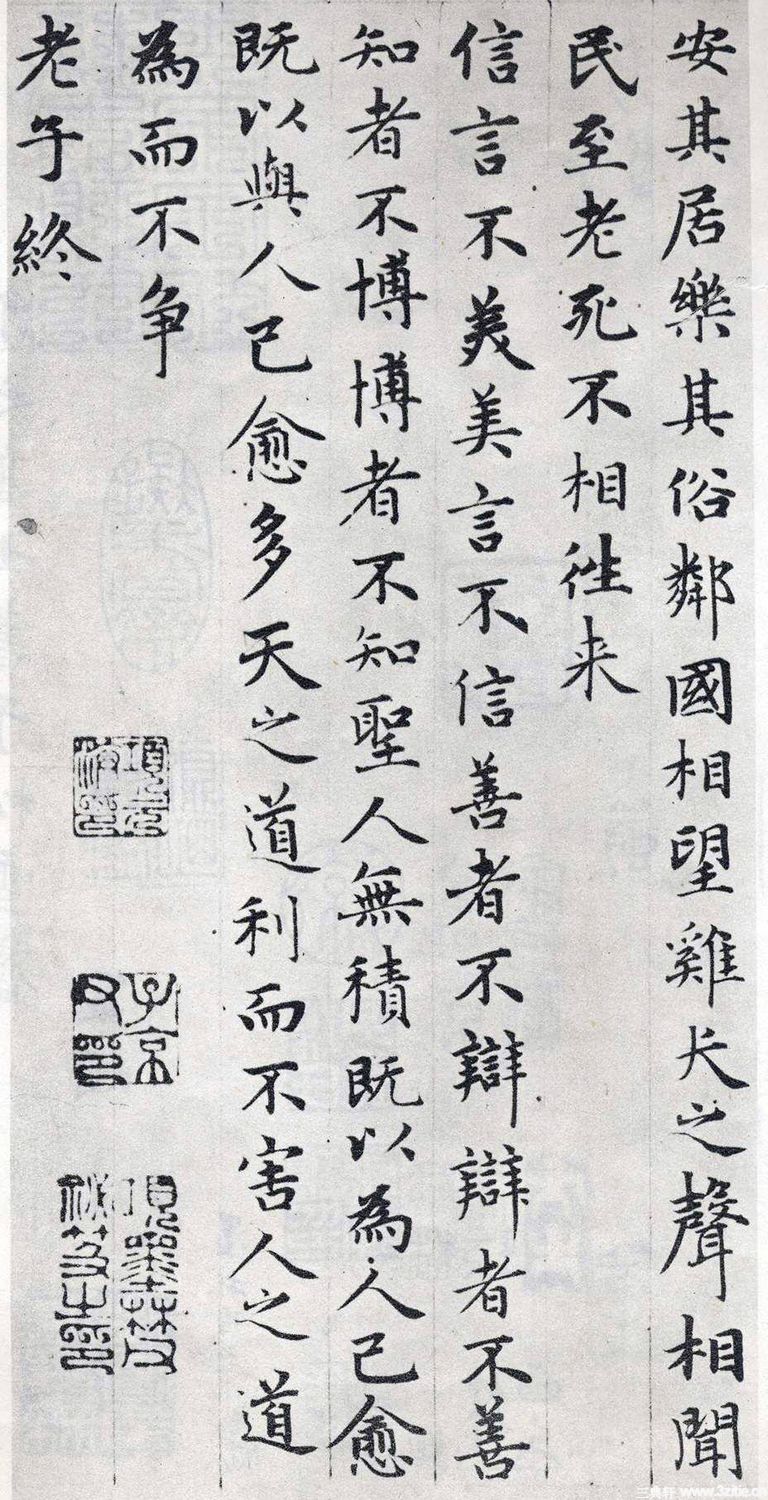 安其居樂其俗鄰國相望雞犬之聲相聞
民至老死不相往来
信言不美美言不信善者不辯辯者不善
知者不博博者不知聖人無積既以為人己愈
既以與人己愈多天之道利而不害人之道
為而不争
老子終
項元汴印
子京父印
項墨林父秘笈之印
三典轩 www.3zitie.cn